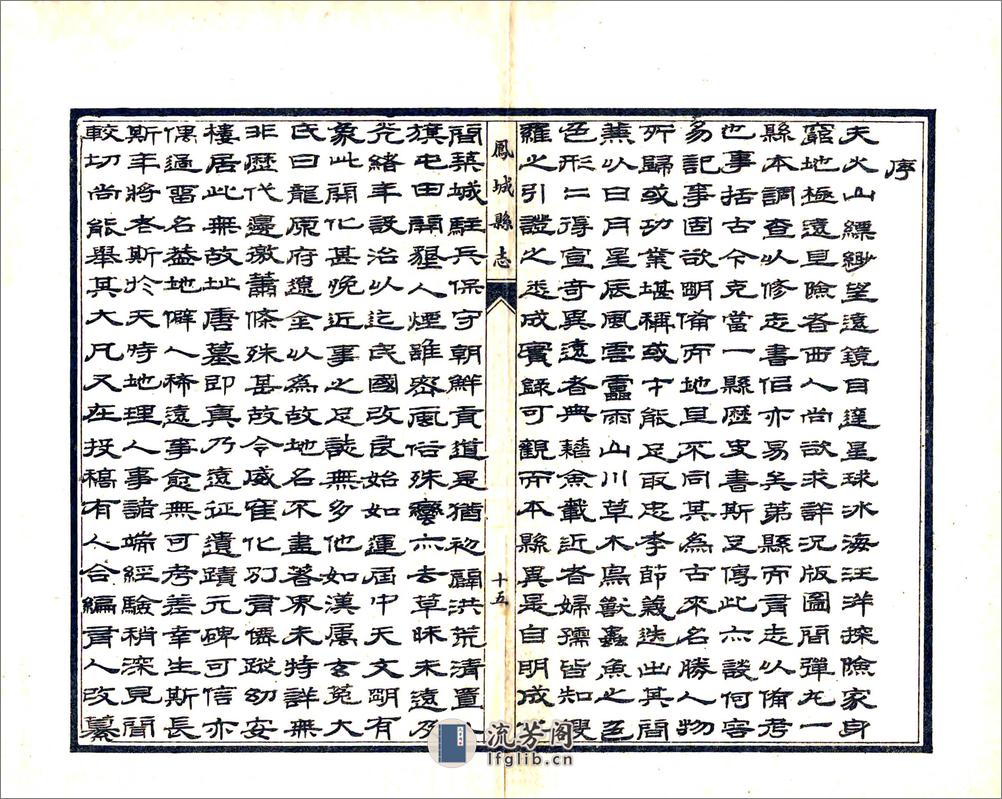 序
夫火山縹緲望遠鏡目達星球冰海汪洋探險家身
竄地極遠且險者西人尚欲求詳況版圖間彈丸一
縣本調查以修志書佀亦易矣第縣而有志以備考
也事括古今克當一縣歷史書斯足傳此亦談何容
易記事固欲明備而地且不同其為古來名勝人物
所歸或功業堪稱或才能足取忠孝節義迭出其間
兼以日月星辰風雲靁雨山川草木鳥獸蟲魚之五
色形仁得宣奇異遠者典籍僉載近者婦孺皆知搜
羅之引證之悉成實錄可觀而本縣異是自明成
鳳城縣志
十五
間築城駐兵保守朝鮮貢道是猶初闢洪荒清置八
旗屯田開墾人煙雖密風俗殊蠻亦去草昧未遠及
光緒年設治以迄民國改良始如運屆中天文明有
象此開化甚晚近事之足誌無多他如漢屬玄菟大
氏曰龍原府遼金以為故地名不盡著界未特詳無
非歷代邊徼蕭條殊甚故令威隺化別有僊蹤幼安
樓居此無故址唐墓即真乃遠征遺蹟元碑可信亦
偶過畱名蓋地僻人稀遠事愈無可考差幸生斯長
斯年將老斯於天時地理人事諸端經驗稍深見聞
較切尚能舉其大凡又在投稿有人合編有人改纂
流芳阁
lfglib.cn